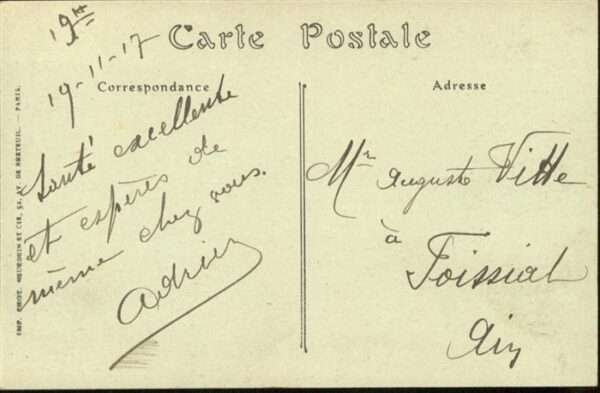 19H
Carte Postale
19-11-17
Correspondance
Adresse
Santé excellente
et espères de
même chez vous.
Adrien
Mr Auguste Vitte
à
Foissiat
Ain
IMP. PHOT. NEURDEIN ET CIE, 52, AV. DE BRETEUIL. — PARIS.